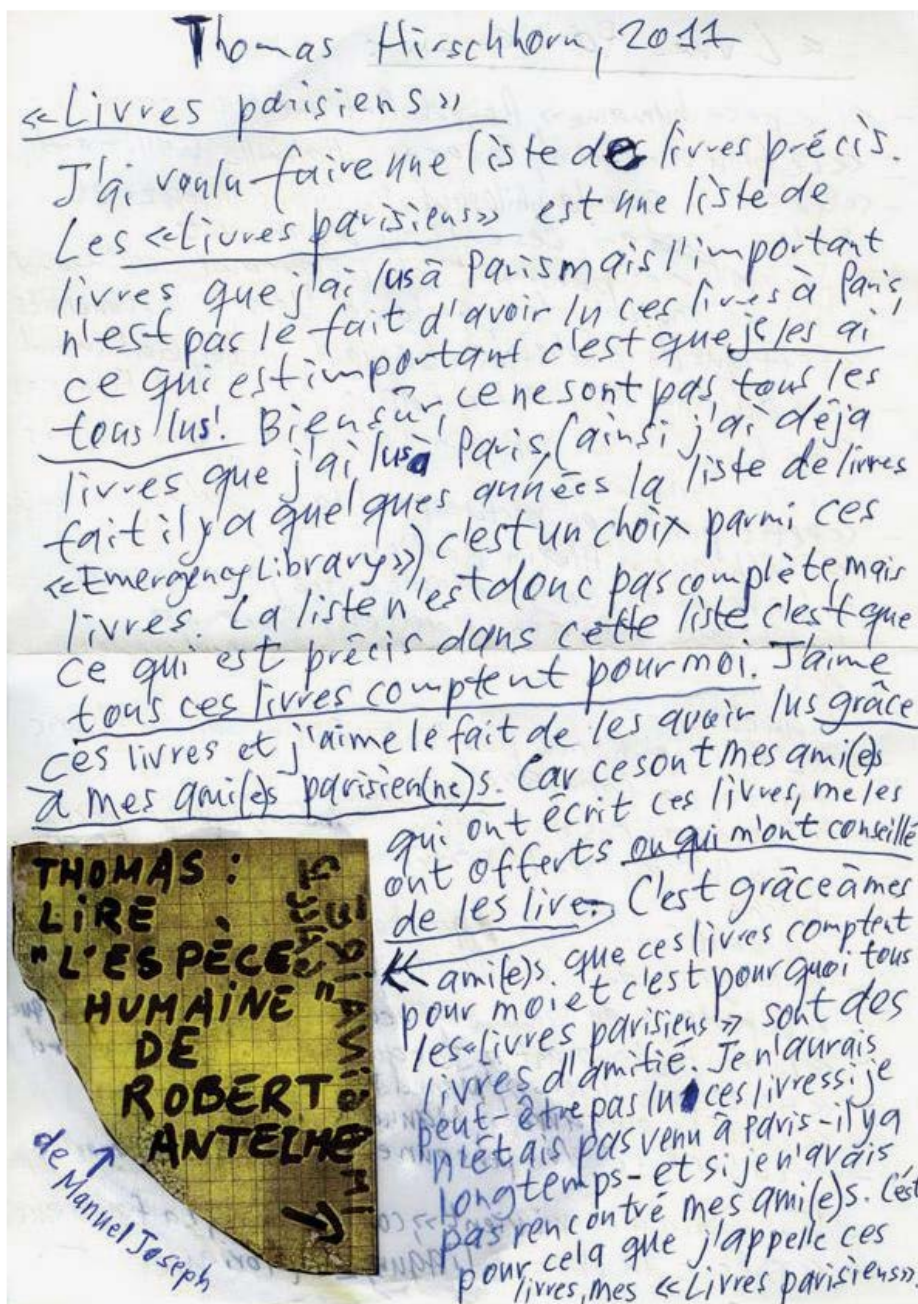 Thomas Hirschhorn, 2011
«Livres parisiens»
J'ai voulu faire une liste de livres précis.
Les «Livres parisiens» est une liste de
livres que j'ai lus à Paris mais l'important
n'est pas le fait d'avoir lu ces livres à Paris,
ce qui est important c'est que je les ai
tous lus! Bien sûr, ce ne sont pas tous les
livres que j'ai lus à Paris, (ainsi j'ai déja
fait il y a quelques années la liste de livres
«Emergency Library») c'est un choix parmi ces
livres. La liste n'est donc pas complète, mais
ce qui est précis dans cette liste c'est que
tous ces livres comptent pour moi. J'aime
ces livres et j'aime le fait de les avoir lus grâce
à mes ami(e)s parisien(ne)s. Car ce sont mes ami(e)s
qui ont écrit ces livres, me les
ont offerts ou qui m'ont conseillé
de les lire. C'est grâce à mes
ami(e)s que ces livres comptent
pour moi et c'est pourquoi tous
les «livres parisiens» sont des
livres d'amitié. Je n'aurais
peut-être pas lu ces livres si je
n'étais pas venu à Paris - il y a
longtemps - et si je n'avais
pas rencontré mes ami(e)s. C'est
pour cela que j'appelle ces
livres, mes «Livres parisiens».
THOMAS :
LIRE
"L'ESPÈCE
HUMAINE"
DE
ROBERT
ANTELME
de Manuel Joseph